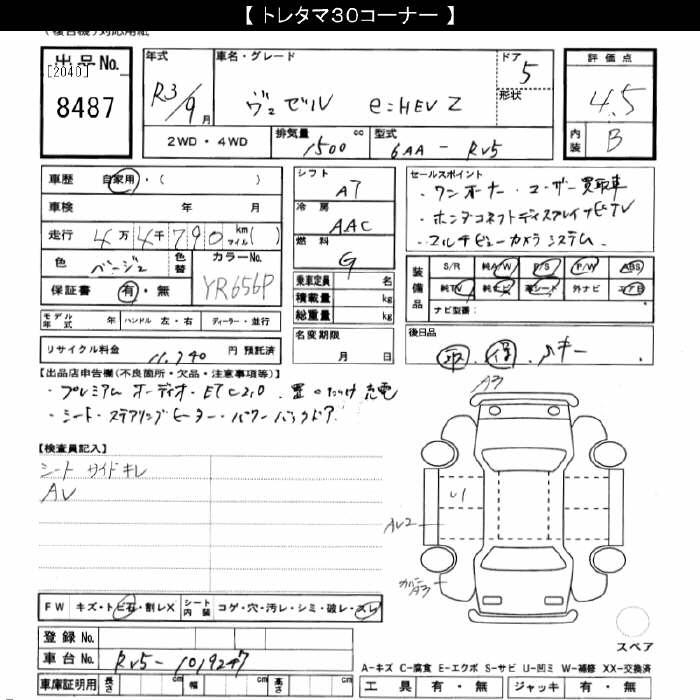 【 トレタマ30コーナー 】
出品No.
[2040]
8487
年式
R3/9月
車名・グレード
ヴェゼル e:HEV Z
ドア
5
形状
2WD・4WD
排気量 1500 cc
型式 6AA - RV5
評価点
4.5
内装 B
車歴 自家用・( )
車検 年 月
走行 4万4千790 km マイル( )
色 ベージュ
色替
カラーNo. YR656P
保証書 有・無
モデル年式 年 ハンドル 左・右 ディーラー・並行
リサイクル料金 11,740 円 預託済
シフト AT
冷房 AAC
燃料 G
乗車定員 名
積載量 kg
総重量 kg
名変期限
月 日
セールスポイント
・ワンオーナー・ユーザー買取車
・ホンダコネクトディスプレイナビTV
・マルチビューカメラシステム
装備品
S/R 純A/W P/S P/W ABS
純TV 純ナビ 革シート 外ナビ エアB
ナビ型番:
後日品
【出品店申告欄(不良箇所・欠品・注意事項等)】
・プレミアムオーディオ・ETC2.0 置くだけ充電
・シート・ステアリングヒーター・パワーバックドア
【検査員記入】
シートサイドキレ
AU
A3
U1
AU2
カバーA3
FW キズ・トビ石・割レX シート内装 コゲ・穴・汚レ・シミ・破レ・スレ
登録No.
車台No. RV5-1019247
車庫証明用 長さ cm 幅 cm 高さ cm
スペア
A-キズ C-腐食 E-エクボ S-サビ U-凹ミ W-補修 XX-交換済
工具 有・無 ジャッキ 有・無